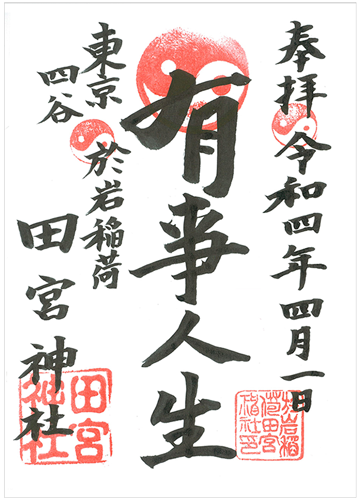 奉拝
令和四年四月一日
有事人生
東京
四谷
於岩稲荷
田宮神社
田宮
神社
於岩稲
荷田宮
神社印